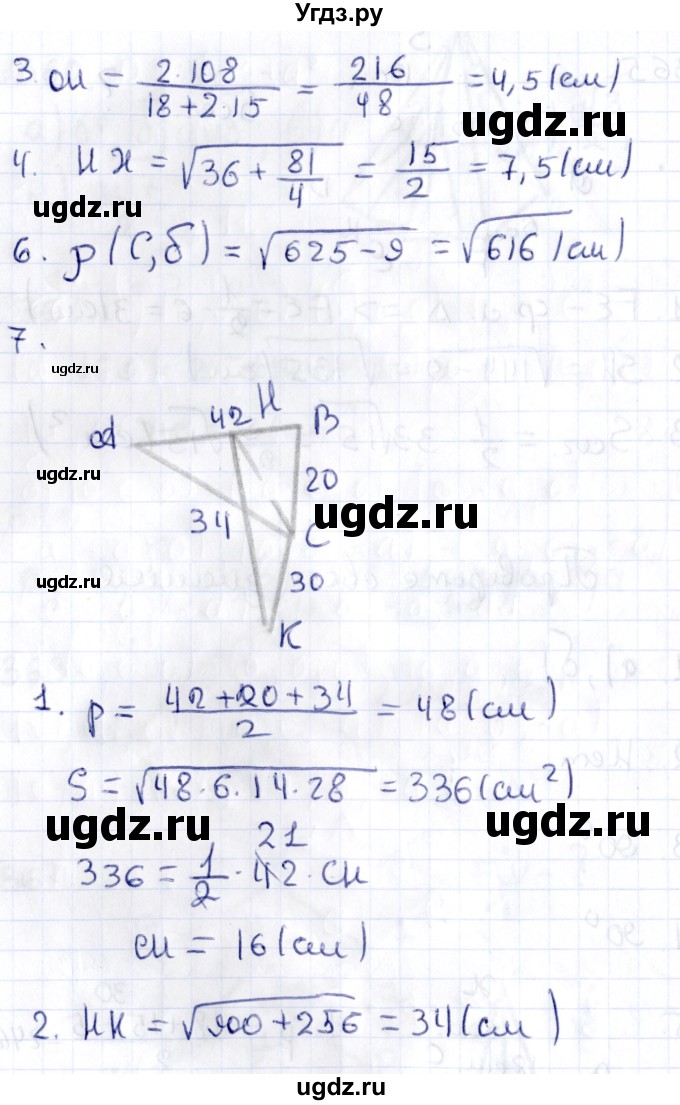 Угдз.ру
3. OH = 2·108/(18+2·15) = 216/48 = 4,5 (см)
ugdz.ru
4. HK = √(36 + 81/4) = 15/2 = 7,5 (см)
ugdz.ru
6. ρ(C, б) = √(625−9) = √616 (см)
7.
ugdz.ru
A 42 H B
ugdz.ru
20
34 C
ugdz.ru
ugdz.ru
30
K
1. p = (42+20+34)/2 = 48 (см)
S = √(48·6·14·28) = 336 (см²)
ugdz.ru ugdz.ru
21
336 = 1/2 · 42 · CH
CH = 16 (см)
2. HK = √(900+256) = 34 (см)
ugdz.ru